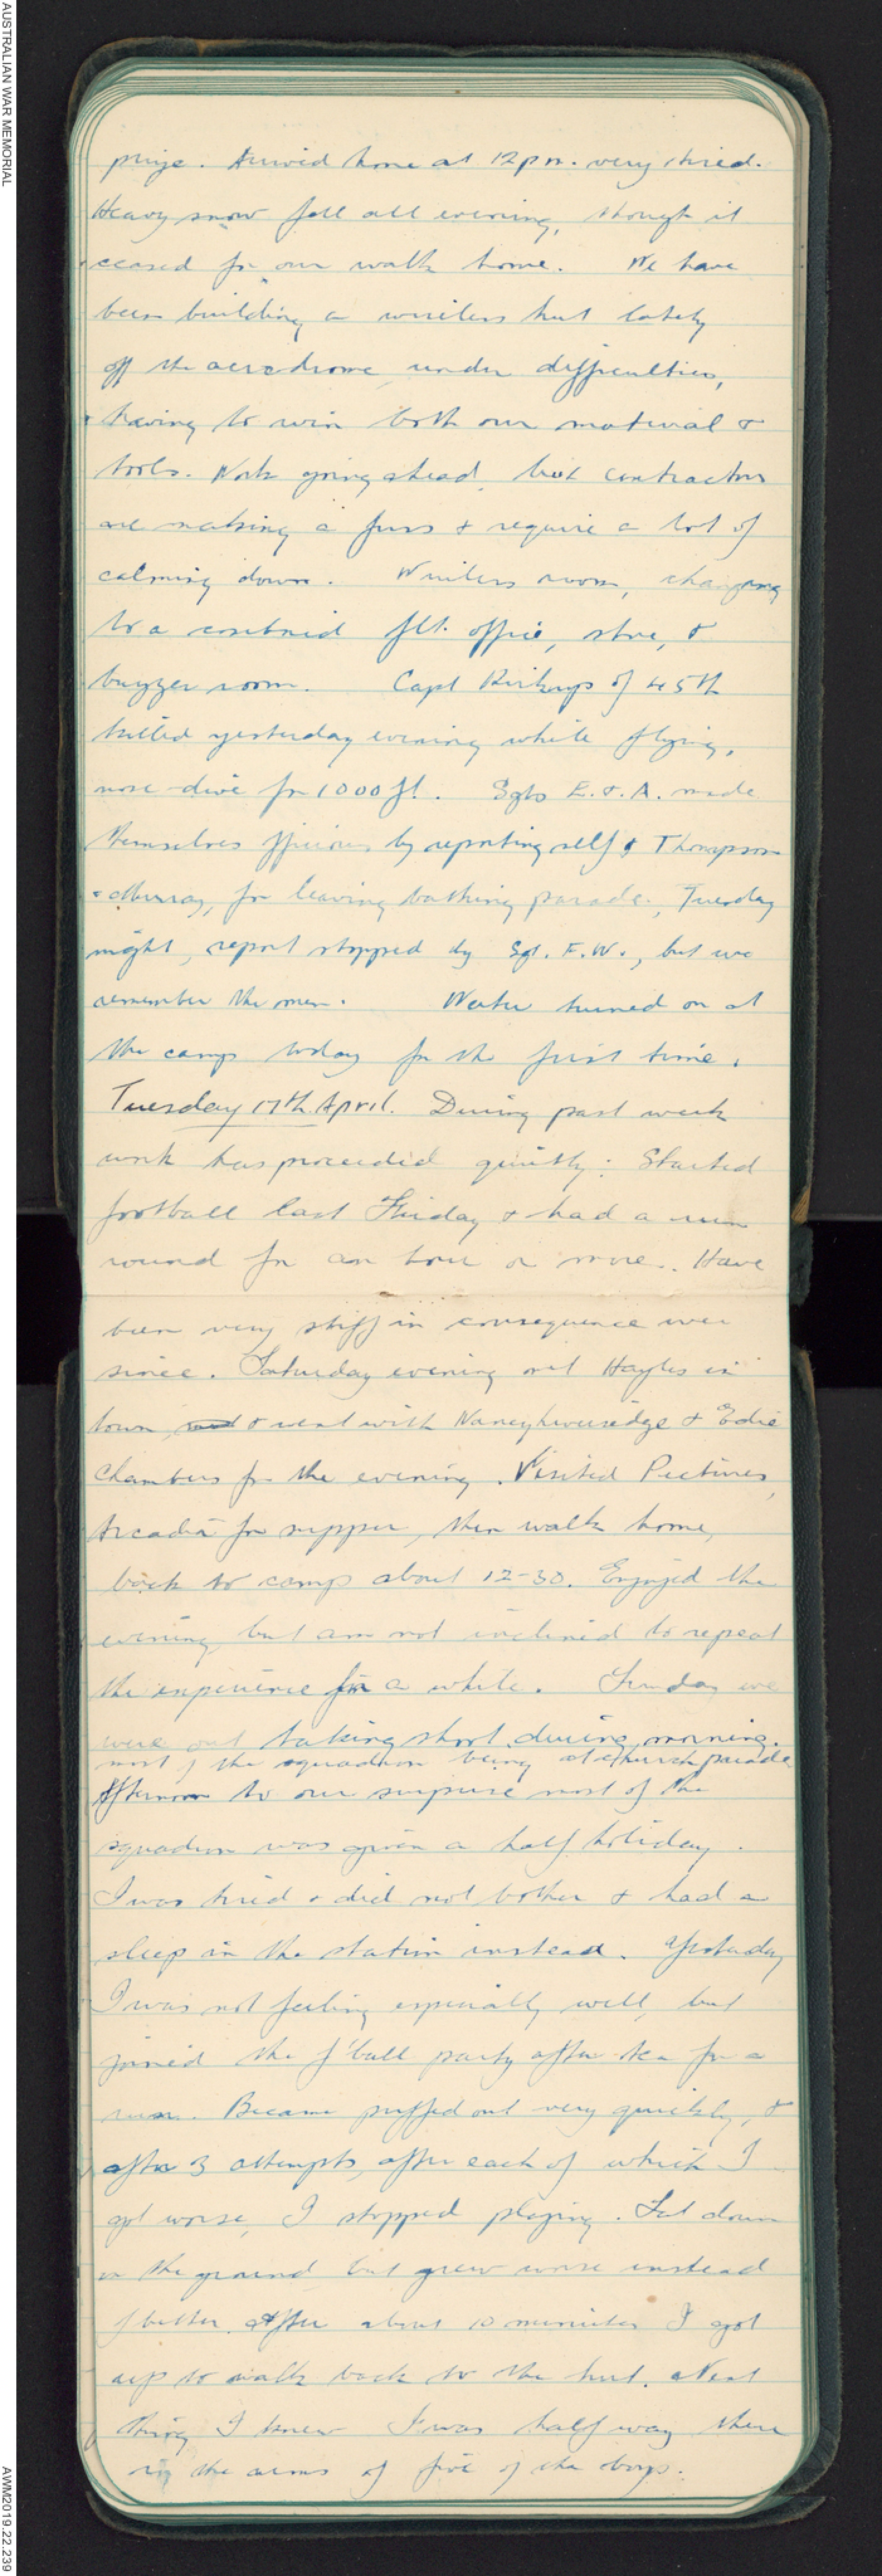 AUSTRALIAN WAR MEMORIAL
prize. Arrived home at 12 pm. very tired.
Heavy snow fell all evening, though it
ceased for our walk home. We have
been building a wireless hut lately
off the aerodrome under difficulties,
having to win both our material &
tools. Work going ahead, but contractors
are making a fuss & require a lot of
calming down. Wireless room, changing
to a combined flt. office, store, &
buzzer room. Capt of 45th
killed yesterday evening while flying,
nose-dive for 1000 ft. Sgts E. & A. made
themselves officious by reporting self & Thompson
& Murray, for leaving bathing parade, Tuesday
night, report stopped by Sgt. F.W., but we
remember the men. Water turned on at
the camp today for the first time.
Tuesday 17th April. During past week
work has proceeded quietly: Started
football last Friday & had a run
round for an hour or more. Have
been very stiff in consequence ever
since. Saturday evening met Hayles in
town, & went with Nancy & Edie
Chambers for the evening. Visited Pictures,
Arcadia for supper, then walk home,
back to camp about 12-30. Enjoyed the
evening, but am not inclined to repeat
the experience for a while. Sunday we
were out taking short during morning.
most of the squadron being at church parade
Afternoon to our surprise most of the
squadron was given a half holiday.
I was tired & did not bother & had a
sleep in the station instead. Yesterday
I was not feeling especially well, but
joined the f'ball party after tea for a
run. Became puffed out very quickly, &
after 3 attempts, after each of which I
got worse, I stopped playing. Sat down
on the ground but grew worse instead
of better. After about 10 minutes I got
up to walk back to the hut. Next
thing I knew I was half way there
in the arms of five of the boys.
AWM2019.22.239